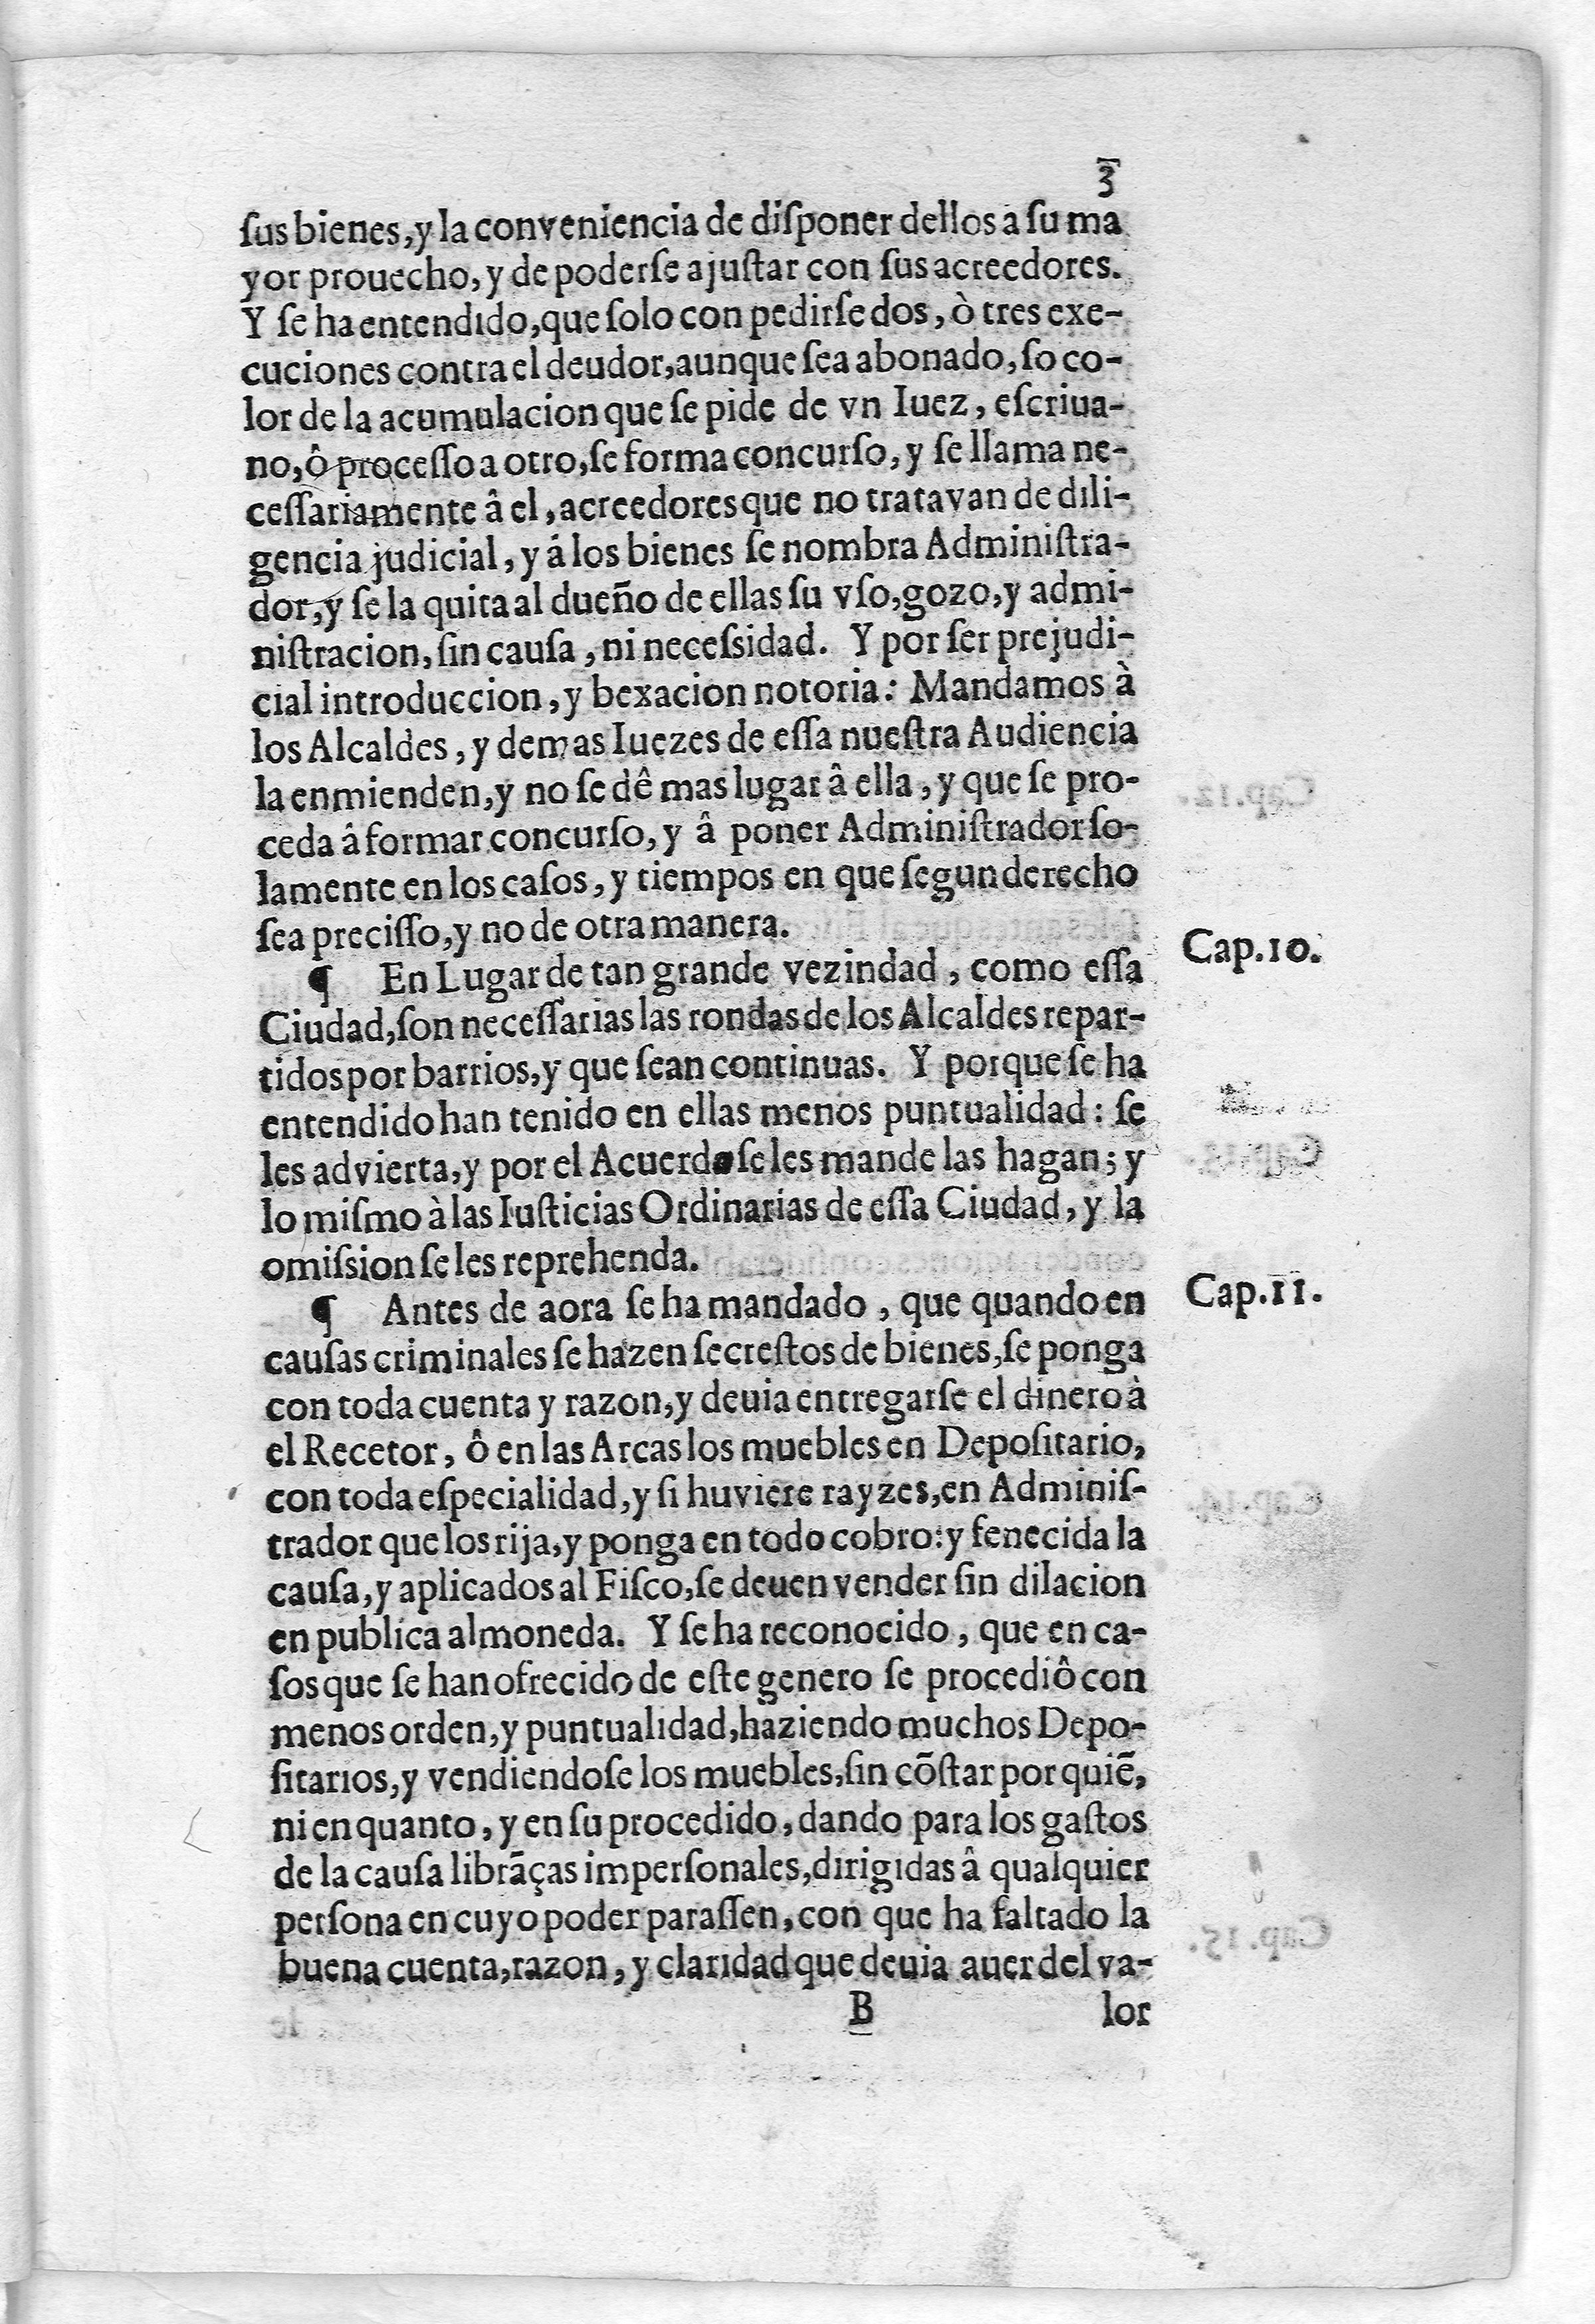 3
ſus bienes, y la conveniencia de diſponer dellos a ſu ma
yor prouecho, y de poderſe ajuſtar con ſus acreedores.
Y ſe ha entendido, que ſolo con pedirſe dos, ò tres exe-
cuciones contra el deudor, aunque ſea abonado, ſo co-
lor de la acumulacion que ſe pide de vn Iuez, eſcriua-
no, ô proceſſo a otro, ſe forma concurſo, y ſe llama ne-
ceſſariamente â el, acreedores que no tratavan de dili-
gencia judicial, y á los bienes ſe nombra Adminiſtra-
dor, y ſe la quita al dueño de ellas ſu vſo, gozo, y admi-
niſtracion, ſin cauſa, ni neceſsidad. Y por ſer prejudi-
cial introduccion, y bexacion notoria: Mandamos à
los Alcaldes, y demas Iuezes de eſſa nueſtra Audiencia
la enmienden, y no ſe dê mas lugar â ella, y que ſe pro-
ceda â formar concurſo, y â poner Adminiſtrador ſo-
lamente en los caſos, y tiempos en que ſegun derecho
ſea preciſſo, y no de otra manera.
¶ En Lugar de tan grande vezindad, como eſſa Cap. 10.
Ciudad, ſon neceſſarias las rondas de los Alcaldes repar-
tidos por barrios, y que ſean continuas. Y porque ſe ha
entendido han tenido en ellas menos puntualidad: ſe
les advierta, y por el Acuerdo ſe les mande las hagan; y
lo miſmo à las Iuſticias Ordinarias de eſſa Ciudad, y la
omiſsion ſe les reprehenda.
¶ Antes de aora ſe ha mandado, que quando en Cap. 11.
cauſas criminales ſe hazen ſecreſtos de bienes, ſe ponga
con toda cuenta y razon, y deuia entregarſe el dinero à
el Recetor, ô en las Arcas los muebles en Depoſitario,
con toda eſpecialidad, y ſi huviere rayzes, en Adminiſ-
trador que los rija, y ponga en todo cobro: y fenecida la
cauſa, y aplicados al Fiſco, ſe deuen vender ſin dilacion
en publica almoneda. Y ſe ha reconocido, que en ca-
ſos que ſe han ofrecido de eſte genero ſe procediô con
menos orden, y puntualidad, haziendo muchos Depo-
ſitarios, y vendiendoſe los muebles, ſin cõſtar por quiẽ,
ni en quanto, y en ſu procedido, dando para los gaſtos
de la cauſa librãças imperſonales, dirigidas â qualquier
perſona en cuyo poder paraſſen, con que ha faltado la
buena cuenta, razon, y claridad que deuia auer del va-
B lor